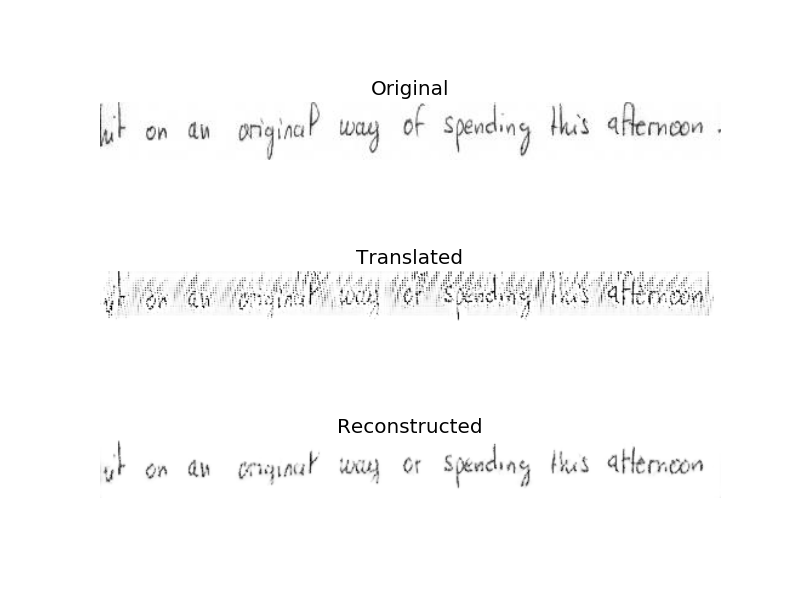 Original
hit on an original way of spending this afternoon .
Translated
it on an original way of spending this afternoon
Reconstructed
it on an original way or spending this afternoon